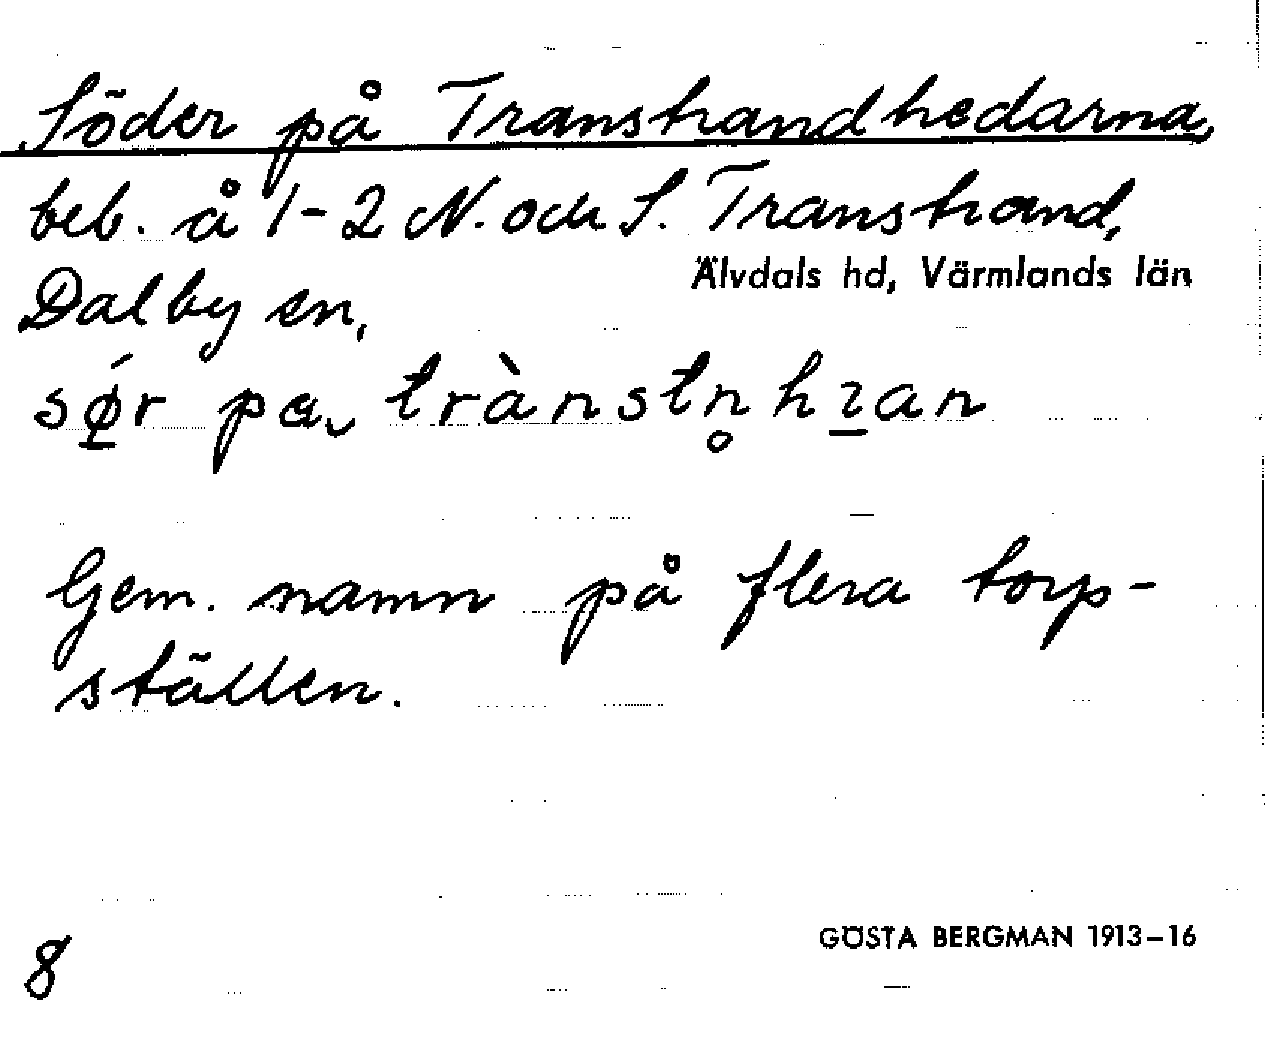 Söder på Transtrandhedarna,
beb. å 1-2 N. och S. Transtrand,
Älvdals hd, Värmlands län
Dalby sn,
sǿ̱r pa˯ trànstn̥hɿ̱an
Gem. namn på flera torp-
ställen.
GÖSTA BERGMAN 1913-16
8